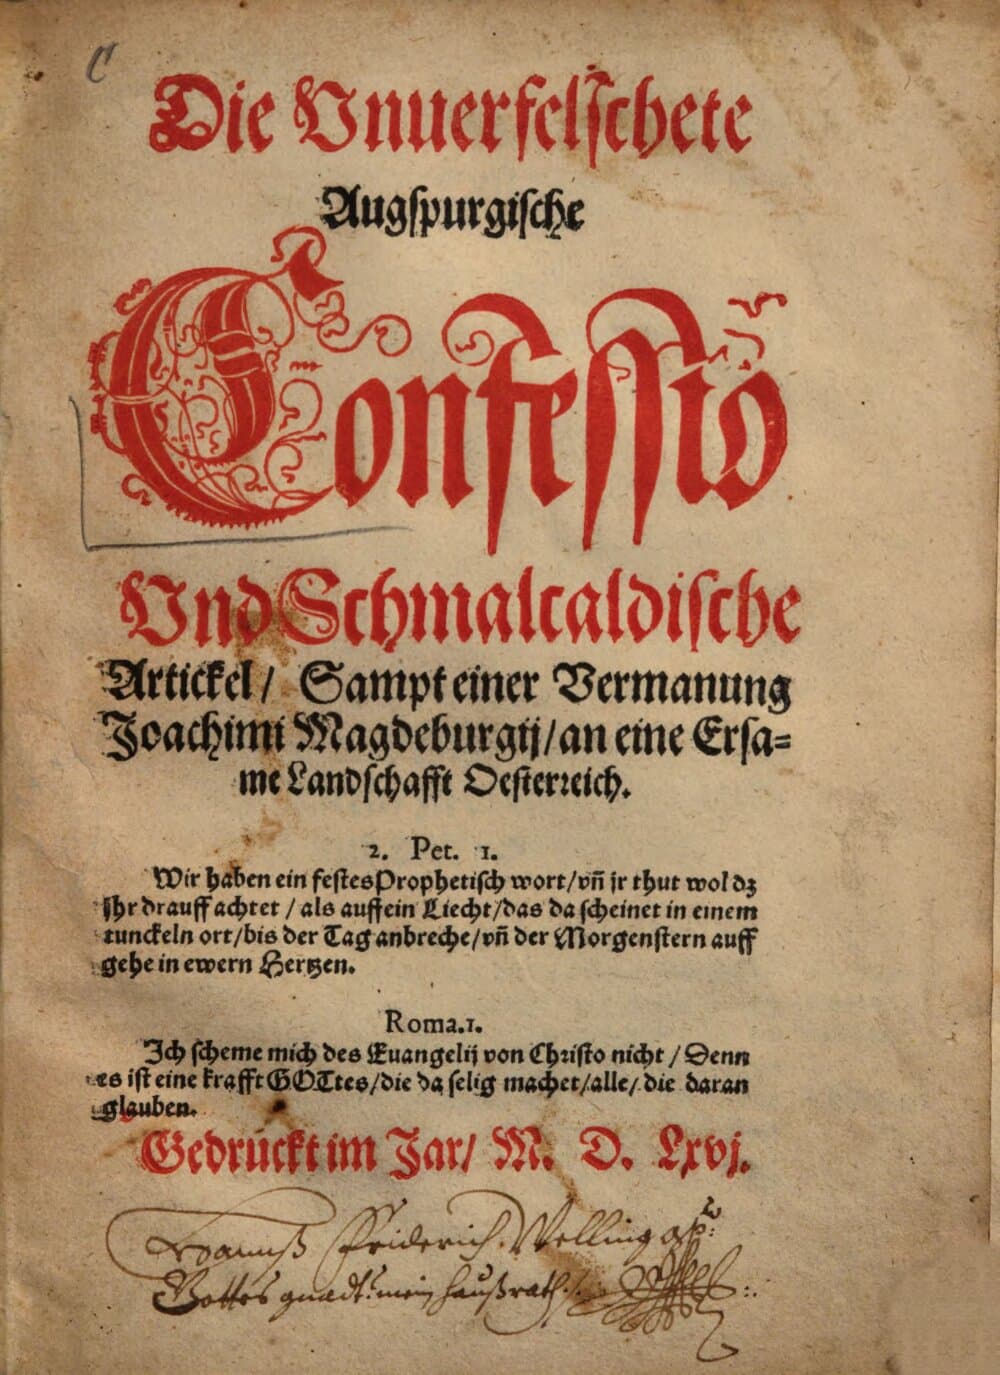 C
Die Vnuerfelschete
Augspurgische
Confessio
Vnd Schmalcaldische
Artickel / Sampt einer Vermanung
Joachimi Magdeburgij / an eine Ersa=
me Landschafft Oesterreich.
2. Pet. 1.
Wir haben ein festes Prophetisch wort / vñ jr thut wol dz
jhr drauff achtet / als auff ein Liecht / das da scheinet in einem
tunckeln ort / bis der Tag anbreche / vñ der Morgenstern auff
gehe in ewern Hertzen.
Roma. 1.
Ich scheme mich des Euangelij von Christo nicht / Denn
es ist eine krafft GOTtes / die da selig machet / alle / die daran
glauben.
Gedruckt im Jar / M. D. Lxvj.
Hannß Friderich Welling
Gottes gnadt mein haußrath